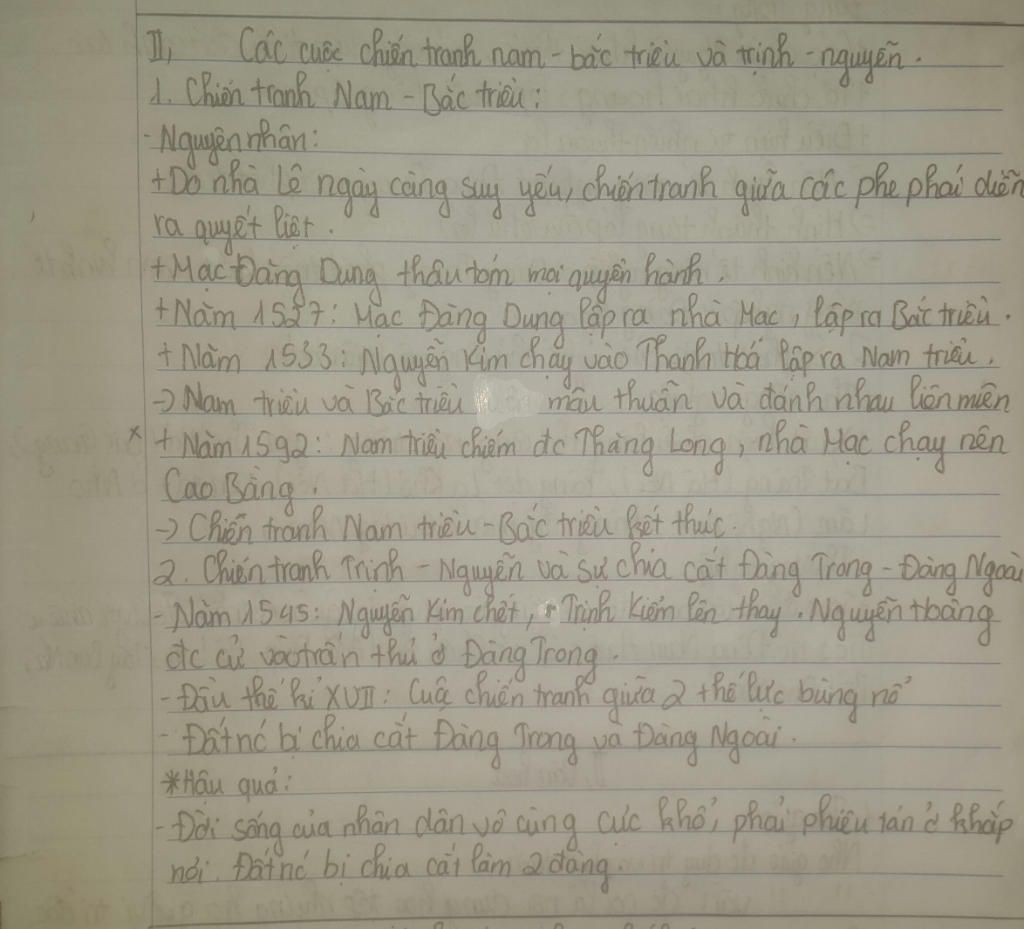 II, Các cuộc chiến tranh nam - bắc triều và trịnh - nguyễn.
1. Chiến tranh Nam - Bắc triều:
- Nguyên nhân:
+ Do nhà Lê ngày càng suy yếu, chiến tranh giữa các phe phái diễn
ra quyết liệt.
+ Mạc Đăng Dung thâu tóm mọi quyền hành.
+ Năm 1527: Mạc Đăng Dung lập ra nhà Mạc, lập ra Bắc triều.
+ Năm 1533: Nguyễn Kim chạy vào Thanh Hoá lập ra Nam triều.
-> Nam triều và Bắc triều mâu thuẫn và đánh nhau liên miên
x + Năm 1592: Nam triều chiếm đc Thăng Long, nhà Mạc chạy nên
Cao Bằng.
-> Chiến tranh Nam triều - Bắc triều kết thúc.
2. Chiến tranh Trịnh - Nguyễn và sự chia cắt Đàng Trong - Đàng Ngoài
- Năm 1545: Nguyễn Kim chết, Trịnh Kiểm lên thay. Nguyễn Hoàng
đc cử vào trấn thủ ở Đàng Trong.
- Đầu thế kỉ XVII: Cuộc chiến tranh giữa 2 thế lực bùng nổ
- Đất nc bị chia cắt Đàng Trong và Đàng Ngoài.
* Hậu quả:
- Đời sống của nhân dân vô cùng cực khổ, phải phiêu tán ở khắp
nơi. Đất nc bị chia cắt làm 2 đàng.